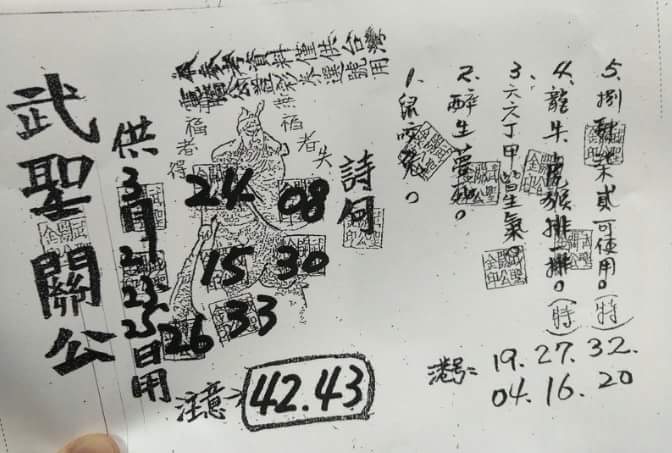 本參考資料僅供台灣
電腦公益彩券選號用
無福者失
福者得
武聖關公
供3月21.23.25日用
24
08
15
30
26
33
詩句
1、鼠咬兔。
2、醉生夢死。
3、六六丁甲皆生氣。
4、龍牛虎猴排一排。(特)
5、捌肆柒貳可使用。(特)
注意→
42.43
港号=
19.27.32.
04.16.20